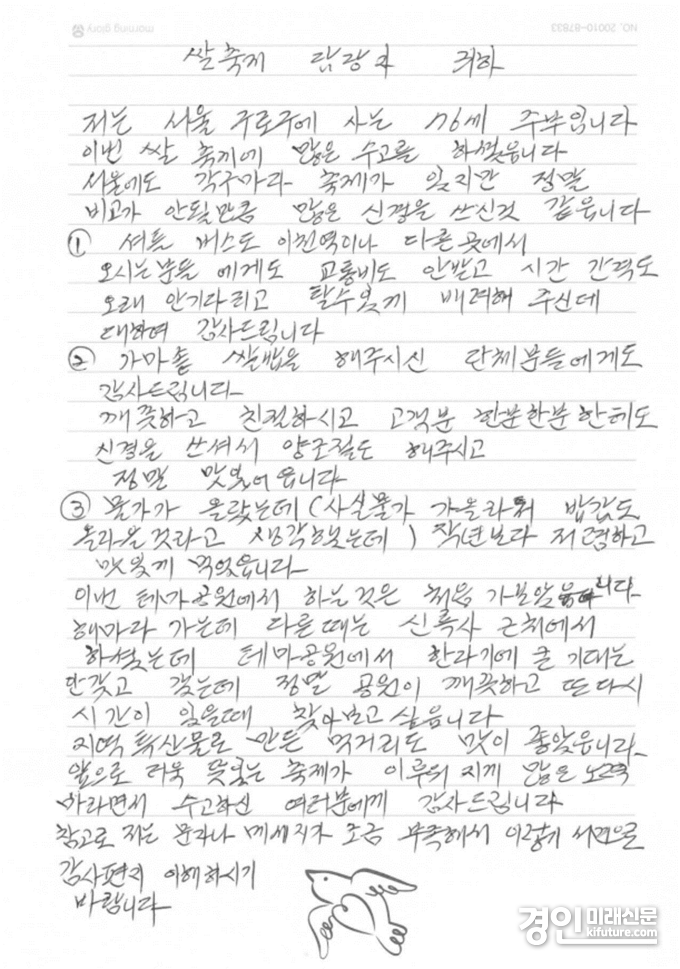 morning glory
NO. 20010-87833
쌀축제 담당자 귀하
저는 서울 구로구에 사는 76세 주부입니다
이번 쌀 축제에 많은 수고를 하셨읍니다
서울에도 각구마다 축제가 있지만 정말
비교가 안될만큼 많은 신경을 쓰신것 같읍니다
① 셔틀 버스도 이천역이나 다른 곳에서
오시는분들 에게도 교통비도 안받고 시간 간격도
오래 안기다리고 탈수있게 배려해 주신데
대하여 감사드립니다
② 가마솥 쌀밥을 해주시신 단체분들에게도
감사드립니다
깨끗하고 친절하시고 고객분 한분한분한테도
신경을 쓰셔서 양조절도 해주시고
정말 맛있어읍니다
③ 물가가 올랐는데 (사실물가 가올라서 밥값도
올라올것라고 생각했는데) 작년보다 저렴하고
맛있게 먹었읍니다
이번 테마공원에서 하는것은 처음 가보았읍니다
해마다 가는데 다른때는 신륵사 근처에서
하셨는데 테마공원에서 한라기에 큰 기대는
안갖고 갔는데 정말 공원이 깨끗하고 또다시
시간이 있을때 찾아보고 싶읍니다
지역 특산물로 만든 먹거리도 맛이 좋았읍니다
앞으로 더욱 뜻있는 축제가 이루워 지게 많은 노력
바라면서 수고하신 여러분에게 감사드립니다
참고로 저는 문자나 메세지가 조금 부족해서 이렇게 서면으로
감사편지 이해하시기
바랍니다
경인미래신문
kifuture.com